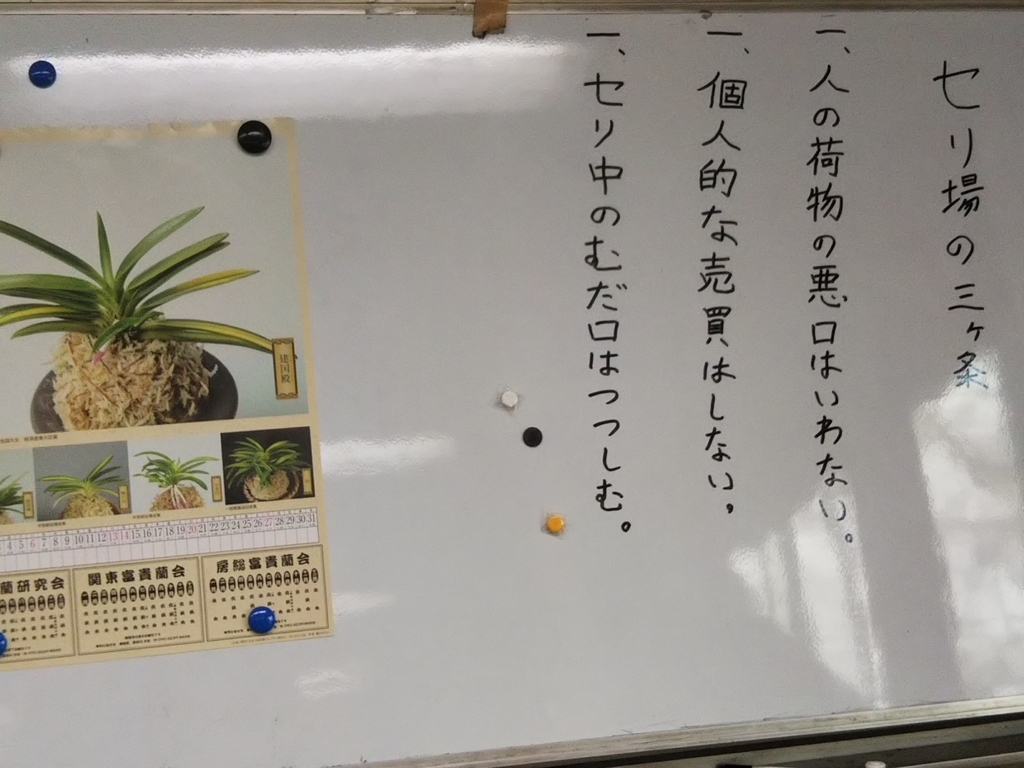 セリ場の三ヶ条
一、人の荷物の悪口はいわない。
一、個人的な売買はしない。
一、セリ中のむだ口はつつしむ。
建国殿
4 5 6 7 8 9 10 11 12 13 14 15 16 17 18 19 20 21 22 23 24 25 26 27 28 29 30 31
蘭研究会
関東富貴蘭会
房総富貴蘭会